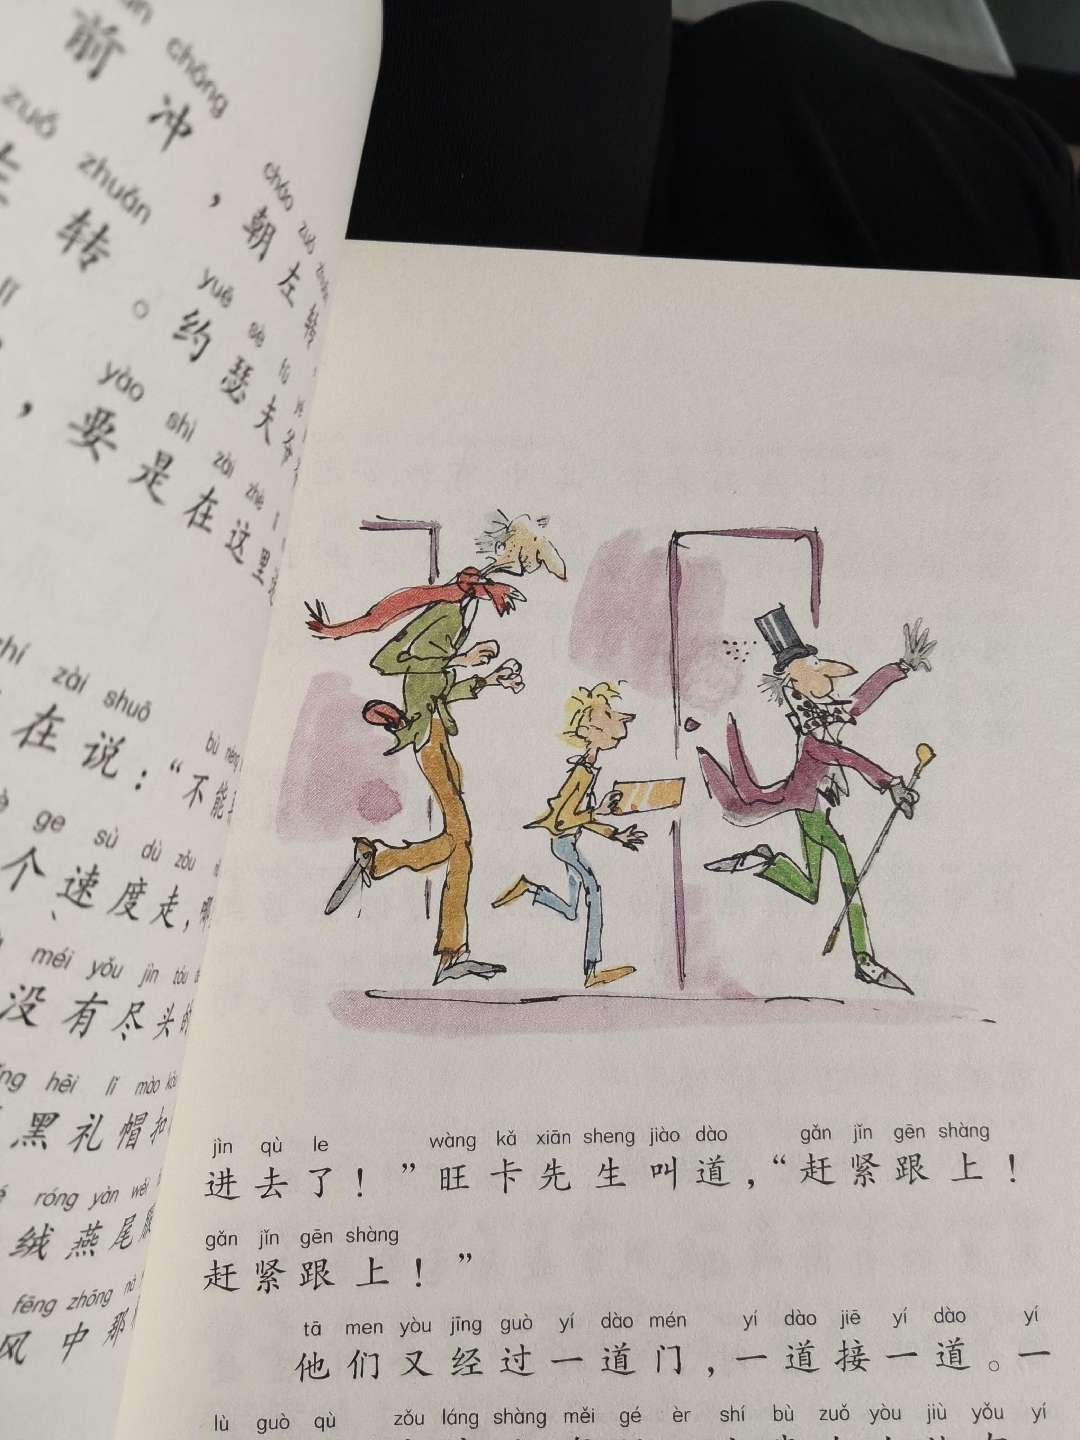 chōng
前冲，朝左转
cháo zuǒ
zuǒ zhuǎn
转。约瑟夫爷
yuē sè fū
yào shi zài zhè
，要是在这里
zài shuō
在说：“不能
gè sù dù zǒu
个速度走，
méi yǒu jìn tóu
没有尽头的
hēi lǐ mào
黑礼帽和
róng yàn wěi
绒燕尾服
fēng zhōng nà
风中那
jìn qù le wàng kǎ xiān sheng jiào dào gǎn jǐn gēn shàng
进去了！”旺卡先生叫道，“赶紧跟上！
gǎn jǐn gēn shàng
赶紧跟上！”
tā men yòu jīng guò yí dào mén yí dào jiē yí dào yí
他们又经过一道门，一道接一道。一
lù guò qù zǒu láng shàng měi gé èr shí bù zuǒ yòu jiù yǒu yí